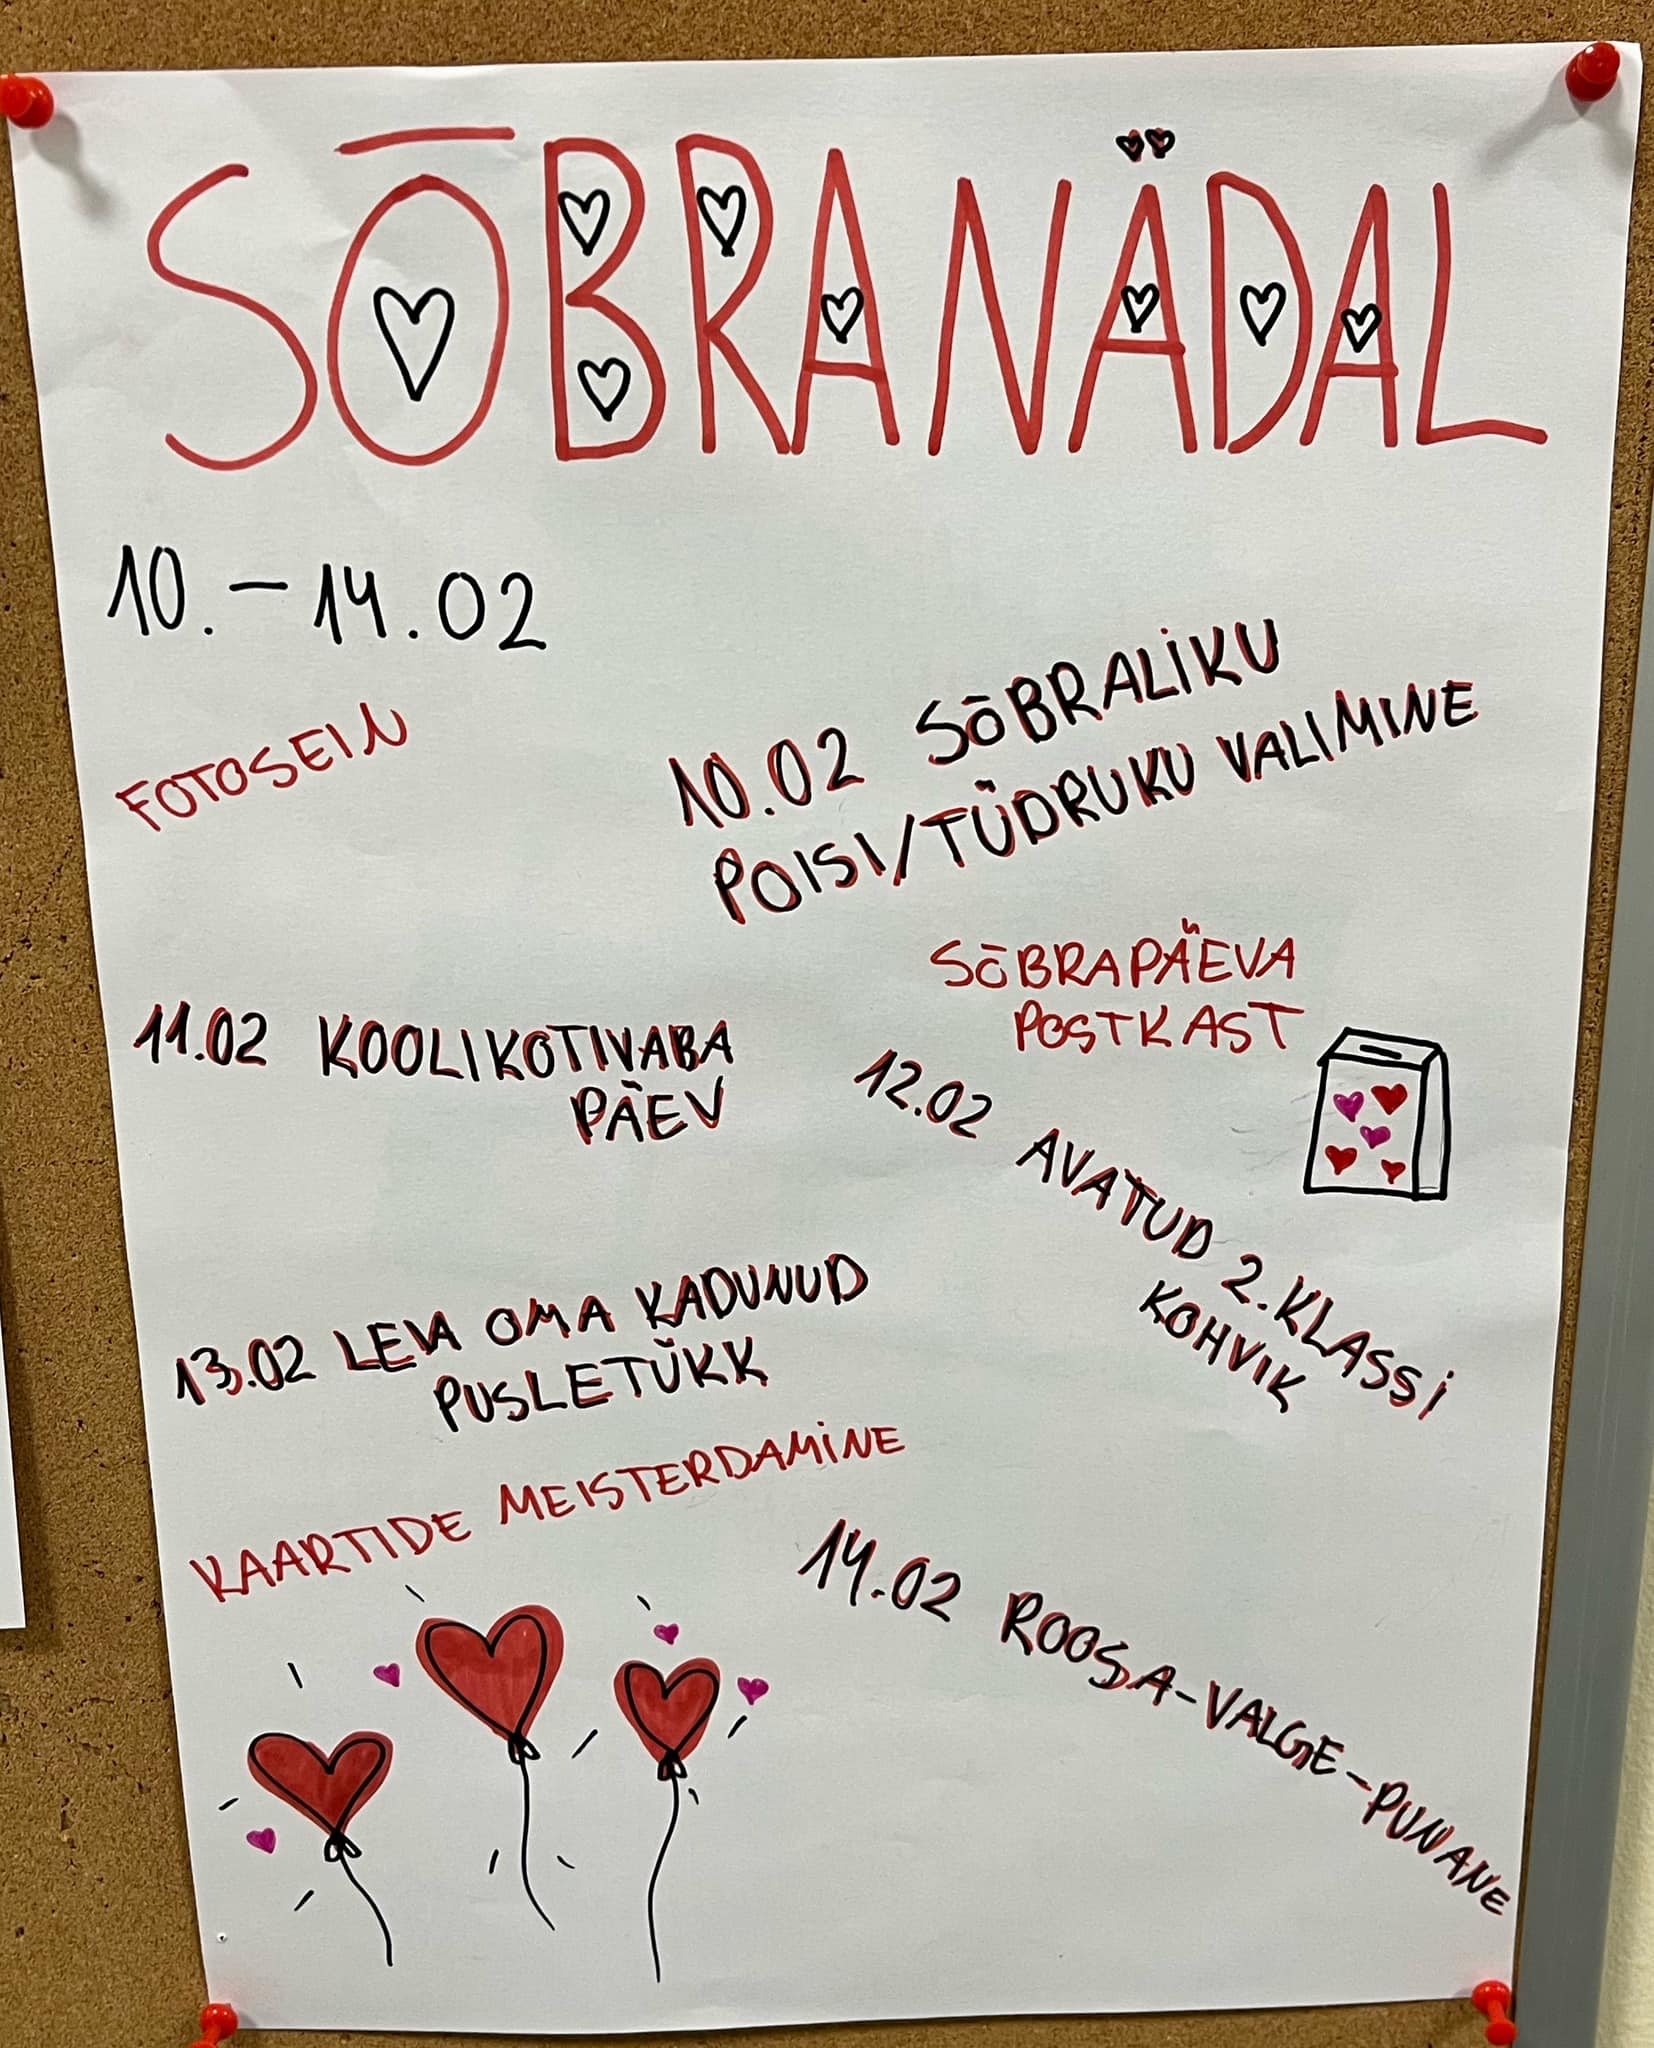 SÕBRANÄDAL
10. - 14.02
FOTOSEIN
10.02 SÕBRALIKU
POISI/TÜDRUKU VALIMINE
SÕBRAPÄEVA
POSTKAST
11.02 KOOLIKOTIVABA
PÄEV
12.02 AVATUD 2. KLASSI
KOHVIK
13.02 LEIA OMA KADUNUD
PUSLETÜKK
KAARTIDE MEISTERDAMINE
14.02 ROOSA-VALGE-PUNANE